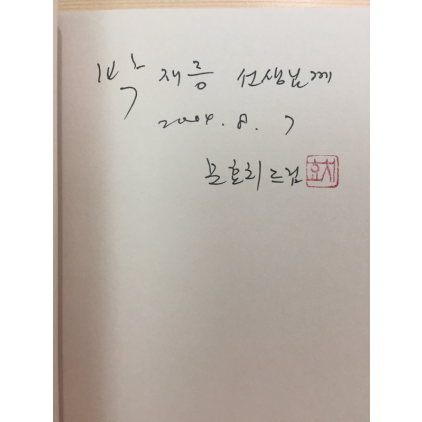 박 재릉 선생님께
2004. 8. 7
문효치 드림 효치